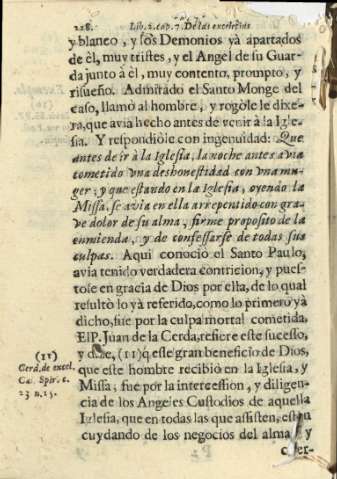 228. Lib. 2. cap. 7. De las excelecias
y blanco, y los Demonios yà apartados
de èl, muy tristes, y el Angel de su Guar-
da junto à èl, muy contento, prompto, y
risueño. Admirado el Santo Monge del
caso, llamò al hombre, y rogòle le dixe-
ra, que avia hecho antes de venir à la Igle-
sia. Y respondiòle con ingenuidad: Que
antes de ir à la Iglesia, la noche antes avia
cometido vna deshonestidad con vna mu-
ger; y que estando en la Iglesia, oyendo la
Missa, se avia en ella arrepentido con gra-
ve dolor de su alma, firme proposito de la
enmienda, y de confessarse de todas sus
culpas. Aqui conociò el Santo Paulo,
avia tenido verdadera contricion, y pues-
tose en gracia de Dios por ella, de lo qual
resultò lo yà referido, como lo primero yà
dicho, fue por la culpa mortal cometida.
El P. Juan de la Cerda, refiere este sucesso,
y dize, (11) q̃ este gran beneficio de Dios,
que este hombre recibiò en la Iglesia, y
Missa, fue por la intercession, y diligen-
cia de los Angeles Custodios de aquella
Iglesia, que en todas las que assisten, estàn
cuydando de los negocios del alma, y
(11)
Cerd. de excel.
Cæ. Spir. c.
23 n. 15.